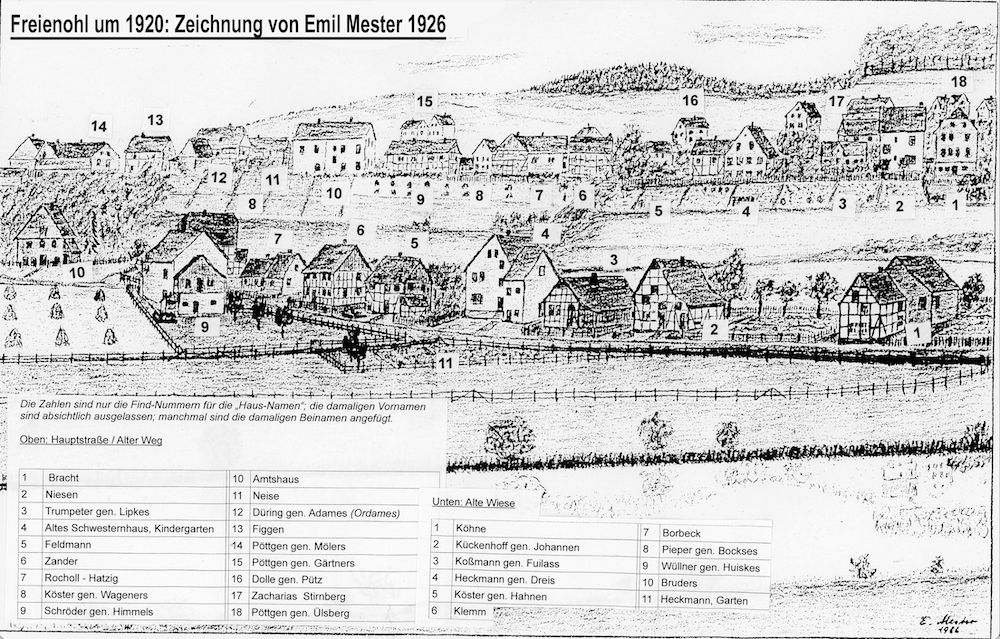 Freienohl um 1920: Zeichnung von Emil Mester 1926
18
15
16
17
13
14
12
11
10
8
9
8
7
6
5
4
3
2
1
10
7
6
5
4
3
9
2
1
11
Die Zahlen sind nur die Find-Nummern für die „Haus-Namen"; die damaligen Vornamen
sind absichtlich ausgelassen; manchmal sind die damaligen Beinamen angefügt.
Oben: Hauptstraße / Alter Weg
1 Bracht 10 Amtshaus
2 Niesen 11 Neise
3 Trumpeter gen. Lipkes 12 Düring gen. Adames (Ordames)
4 Altes Schwesternhaus, Kindergarten 13 Figgen
5 Feldmann 14 Pöttgen gen. Mölers
6 Zander 15 Pöttgen gen. Gärtners
7 Rocholl - Hatzig 16 Dolle gen. Pütz
8 Köster gen. Wageners 17 Zacharias Stirnberg
9 Schröder gen. Himmels 18 Pöttgen gen. Ülsberg
Unten: Alte Wiese
1 Köhne 7 Borbeck
2 Kückenhoff gen. Johannen 8 Pieper gen. Bockses
3 Koßmann gen. Fuilass 9 Wüllner gen. Huiskes
4 Heckmann gen. Dreis 10 Bruders
5 Köster gen. Hahnen 11 Heckmann, Garten
6 Klemm
E. Mester